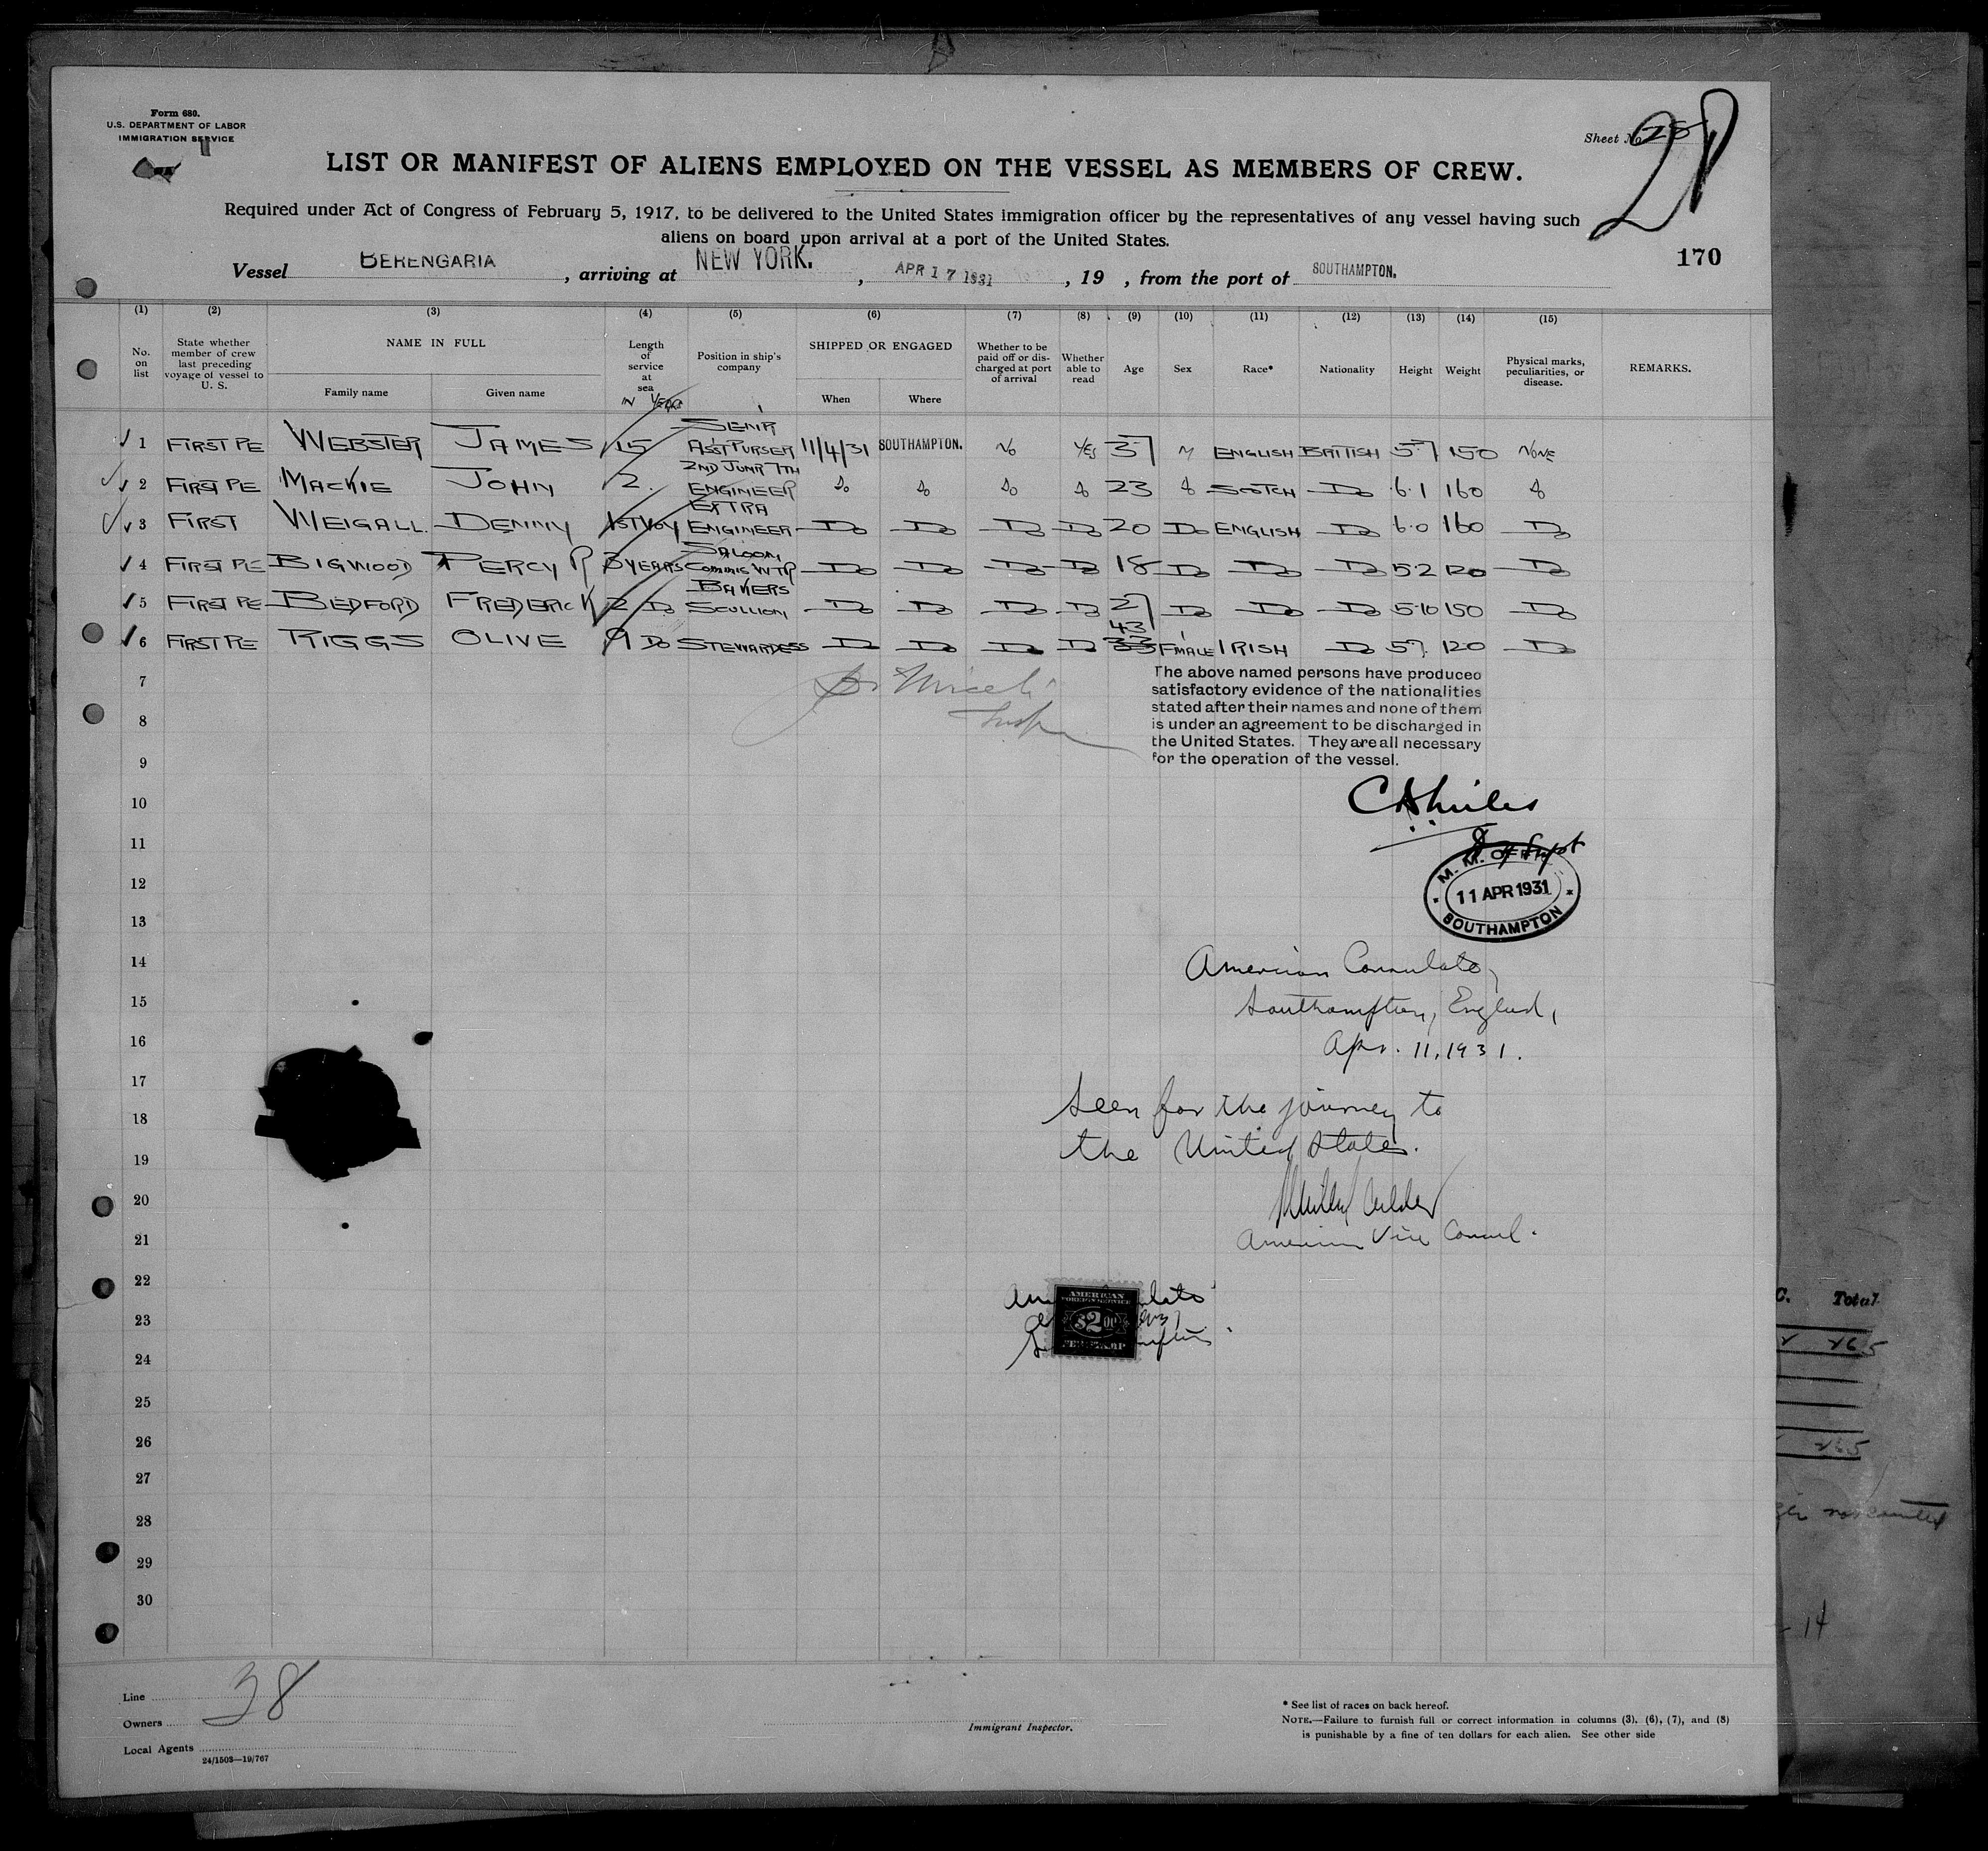 Form 680.
U.S. DEPARTMENT OF LABOR
IMMIGRATION SERVICE
Sheet No. 28
LIST OR MANIFEST OF ALIENS EMPLOYED ON THE VESSEL AS MEMBERS OF CREW.
Required under Act of Congress of February 5, 1917, to be delivered to the United States immigration officer by the representatives of any vessel having such
aliens on board upon arrival at a port of the United States.
170
Vessel BERENGARIA, arriving at NEW YORK., APR 17 1931, 19 , from the port of SOUTHAMPTON.
(1) (2) (3) (4) (5) (6) (7) (8) (9) (10) (11) (12) (13) (14) (15)
No. on list
State whether member of crew last preceding voyage of vessel to U. S.
NAME IN FULL
Family name
Given name
Length of service at sea
IN YEARS
Position in ship's company
SHIPPED OR ENGAGED
When
Where
Whether to be paid off or discharged at port of arrival
Whether able to read
Age
Sex
Race*
Nationality
Height
Weight
Physical marks, peculiarities, or disease.
REMARKS.
1 FIRST PE WEBSTER JAMES 15 SENR ASST PURSER 11/4/31 SOUTHAMPTON. No YES 37 M ENGLISH BRITISH 5.7 150 NONE
2 FIRST PE MACKIE JOHN 2. 2ND JUNR 7TH ENGINEER do do do do 23 do SCOTCH Do 6.1 160 do
3 FIRST WEIGALL. DENNY 1ST VOY EXTRA ENGINEER Do Do Do Do 20 Do ENGLISH Do 6.0 160 Do
4 FIRST PE BIGWOOD PERCY R 3 YEARS SALOON COMMIS WTR Do Do Do Do 18 Do Do Do 5.2 120 Do
5 FIRST PE BEDFORD FREDERICK 2 Do BAKERS SCULLION Do Do Do Do 27 Do Do Do 5.10 150 Do
6 FIRST PE RIGGS OLIVE 9 Do STEWARDESS Do Do Do Do 43 33 FMALE IRISH Do 5.7. 120 Do
7
8
9
10
11
12
13
14
15
16
17
18
19
20
21
22
23
24
25
26
27
28
29
30
The above named persons have produced
satisfactory evidence of the nationalities
stated after their names and none of them
is under an agreement to be discharged in
the United States. They are all necessary
for the operation of the vessel.
11 APR 1931
SOUTHAMPTON
American Consulate,
Southampton, England,
Apr. 11, 1931.
Seen for the journey to
the United States.
American Vice Consul.
AMERICAN
FOREIGN SERVICE
$2.00
FEE STAMP
Line
38
Owners
Local Agents
24/1503—19/767
Immigrant Inspector.
* See list of races on back hereof.
NOTE.—Failure to furnish full or correct information in columns (3), (6), (7), and (8)
is punishable by a fine of ten dollars for each alien. See other side
C. Total
14